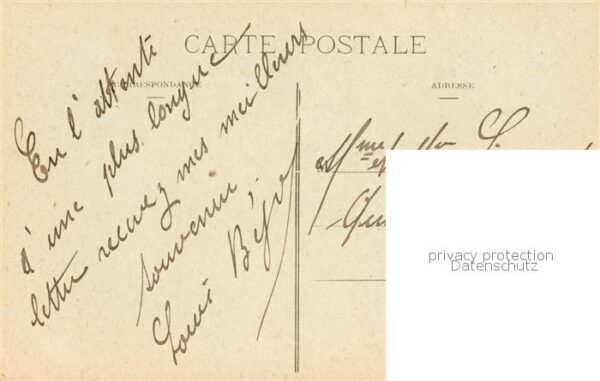 CARTE POSTALE
CORRESPONDANCE
En l'attente
d'une plus longue
lettre recevez mes meilleurs
souvenirs.
Louis
ADRESSE
Mme
privacy protection
Datenschutz